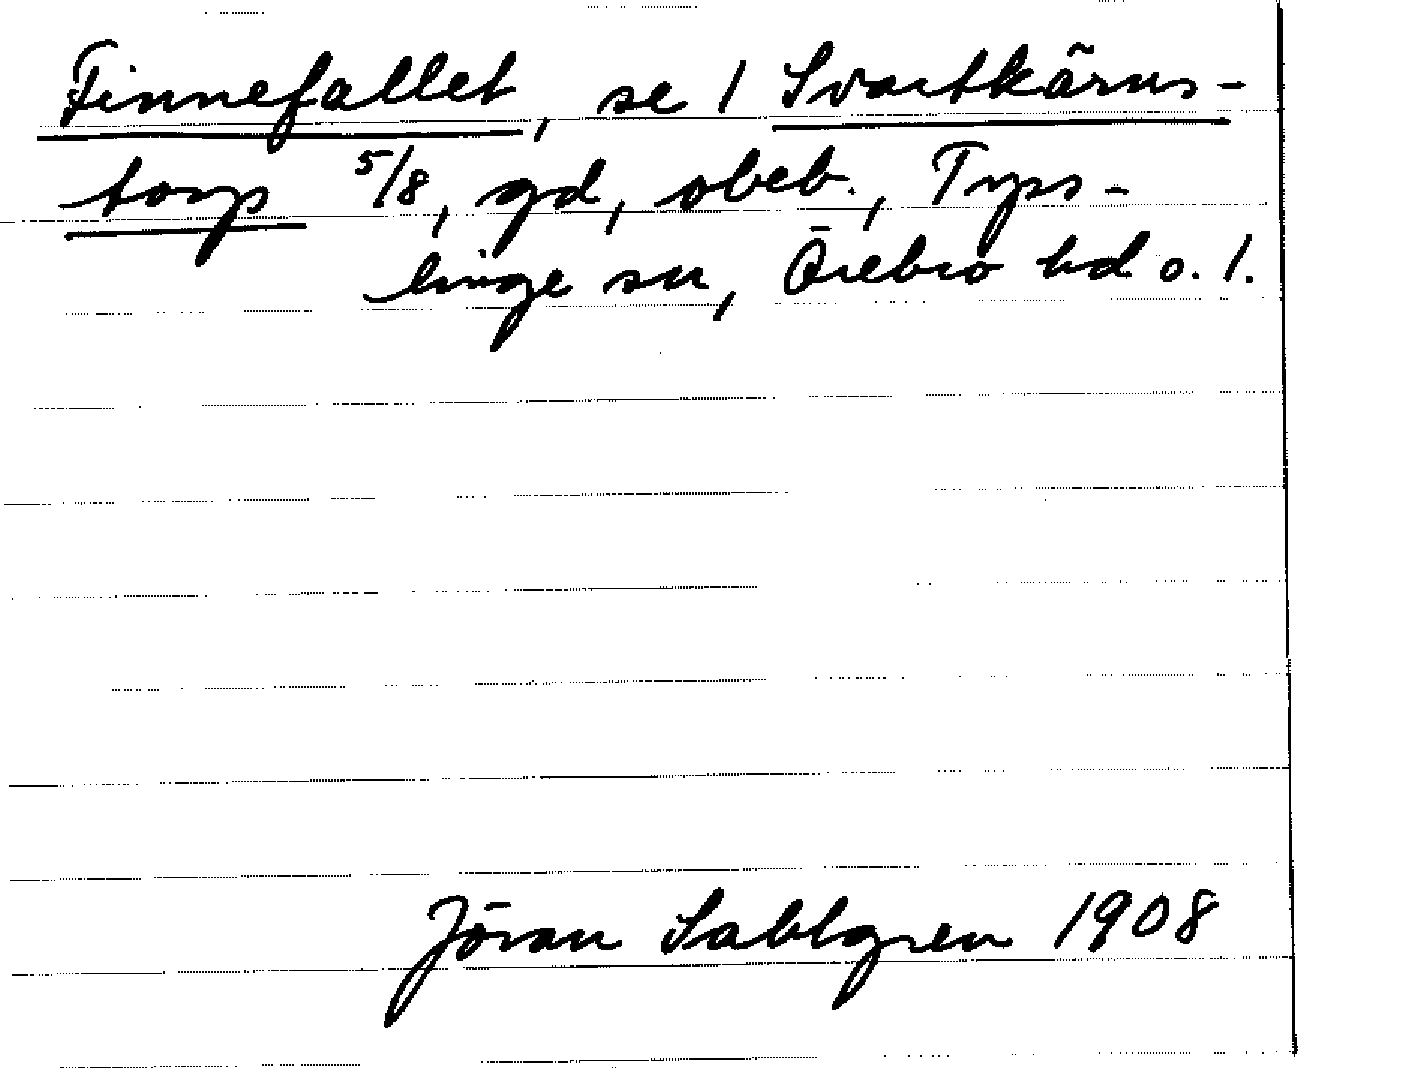 Finnefallet, se 1 Svartkärns-
torp 5/8, gd, obeb., Tyss-
linge sn, Örebro hd o. l.
Jöran Sahlgren 1908